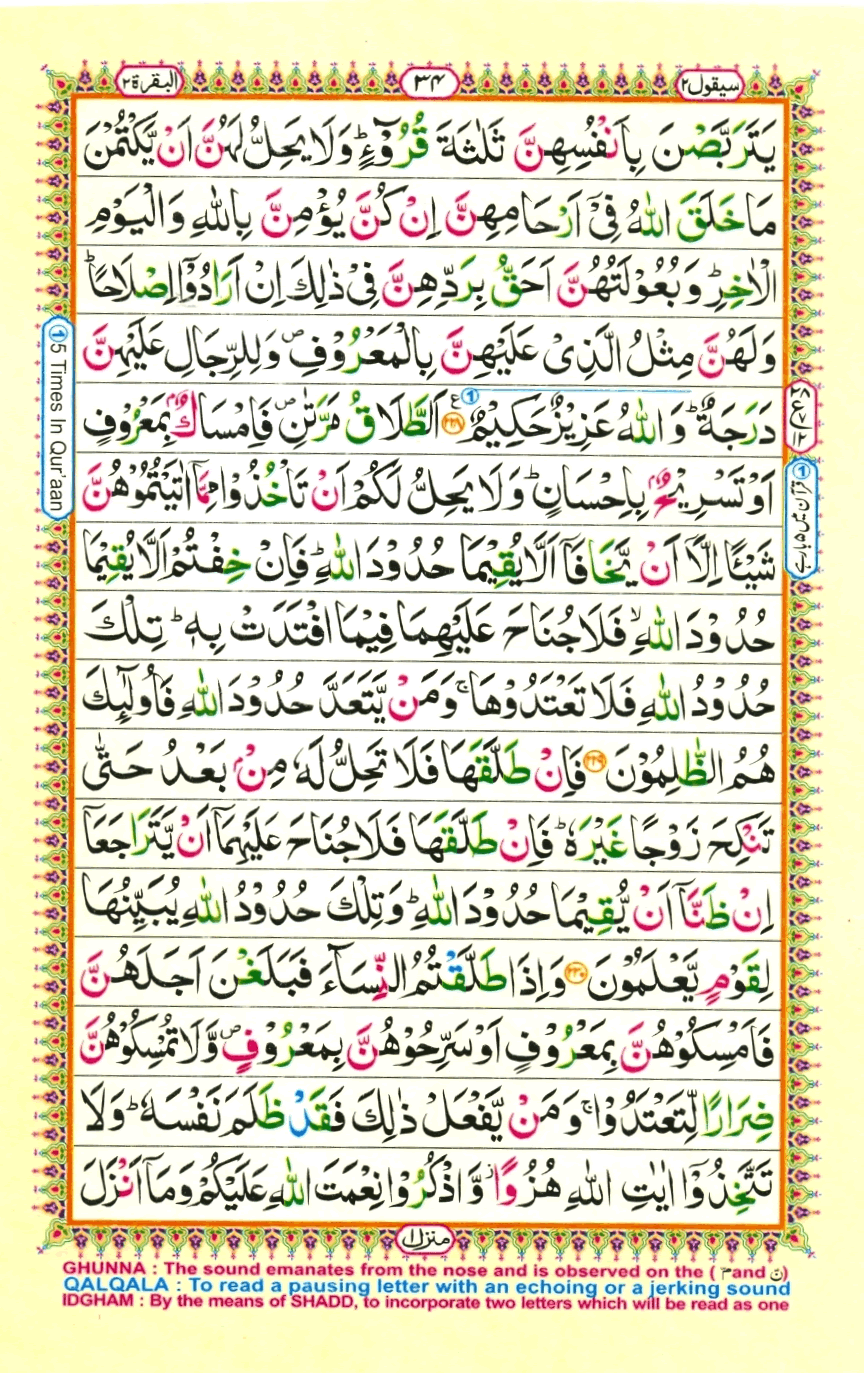 البقرة ٢
٣٤
سيقول ٢
يَتَرَبَّصْنَ بِاَنْفُسِهِنَّ ثَلٰثَةَ قُرُوْٓءٍ ؕ وَلَا يَحِلُّ لَهُنَّ اَنْ يَّكْتُمْنَ
مَا خَلَقَ اللّٰهُ فِیْۤ اَرْحَامِهِنَّ اِنْ كُنَّ يُؤْمِنَّ بِاللّٰهِ وَالْيَوْمِ
الْاٰخِرِ ؕ وَبُعُوْلَتُهُنَّ اَحَقُّ بِرَدِّهِنَّ فِیْ ذٰلِكَ اِنْ اَرَادُوْۤا اِصْلَاحًا ؕ
وَلَهُنَّ مِثْلُ الَّذِیْ عَلَيْهِنَّ بِالْمَعْرُوْفِ ۪ وَلِلرِّجَالِ عَلَيْهِنَّ
دَرَجَةٌ ؕ وَاللّٰهُ عَزِيْزٌ حَكِيْمٌ ۧ ﴿۲۲۸﴾ اَلطَّلَاقُ مَرَّتٰنِ ۪ فَاِمْسَاكٌۢ بِمَعْرُوْفٍ
اَوْ تَسْرِيْحٌۢ بِاِحْسَانٍ ؕ وَلَا يَحِلُّ لَكُمْ اَنْ تَاْخُذُوْا مِمَّاۤ اٰتَيْتُمُوْهُنَّ
شَيْـًٔا اِلَّاۤ اَنْ يَّخَافَاۤ اَلَّا يُقِيْمَا حُدُوْدَ اللّٰهِ ؕ فَاِنْ خِفْتُمْ اَلَّا يُقِيْمَا
حُدُوْدَ اللّٰهِ ۙ فَلَا جُنَاحَ عَلَيْهِمَا فِيْمَا افْتَدَتْ بِهٖ ؕ تِلْكَ
حُدُوْدُ اللّٰهِ فَلَا تَعْتَدُوْهَا ۚ وَمَنْ يَّتَعَدَّ حُدُوْدَ اللّٰهِ فَاُولٰٓئِكَ
هُمُ الظّٰلِمُوْنَ ﴿۲۲۹﴾ فَاِنْ طَلَّقَهَا فَلَا تَحِلُّ لَهٗ مِنْۢ بَعْدُ حَتّٰی
تَنْكِحَ زَوْجًا غَيْرَهٗ ؕ فَاِنْ طَلَّقَهَا فَلَا جُنَاحَ عَلَيْهِمَاۤ اَنْ يَّتَرَاجَعَاۤ
اِنْ ظَنَّاۤ اَنْ يُّقِيْمَا حُدُوْدَ اللّٰهِ ؕ وَتِلْكَ حُدُوْدُ اللّٰهِ يُبَيِّنُهَا
لِقَوْمٍ يَّعْلَمُوْنَ ﴿۲۳۰﴾ وَاِذَا طَلَّقْتُمُ النِّسَآءَ فَبَلَغْنَ اَجَلَهُنَّ
فَاَمْسِكُوْهُنَّ بِمَعْرُوْفٍ اَوْ سَرِّحُوْهُنَّ بِمَعْرُوْفٍ ۪ وَّلَا تُمْسِكُوْهُنَّ
ضِرَارًا لِّتَعْتَدُوْا ۚ وَمَنْ يَّفْعَلْ ذٰلِكَ فَقَدْ ظَلَمَ نَفْسَهٗ ؕ وَلَا
تَتَّخِذُوْۤا اٰيٰتِ اللّٰهِ هُزُوًا ۫ وَّاذْكُرُوْا نِعْمَتَ اللّٰهِ عَلَيْكُمْ وَمَاۤ اَنْزَلَ
① 5 Times In Qur'aan
① قرآن میں ۵ بار ہے
منزل ١
GHUNNA : The sound emanates from the nose and is observed on the ( مّ and نّ)
QALQALA : To read a pausing letter with an echoing or a jerking sound
IDGHAM : By the means of SHADD, to incorporate two letters which will be read as one